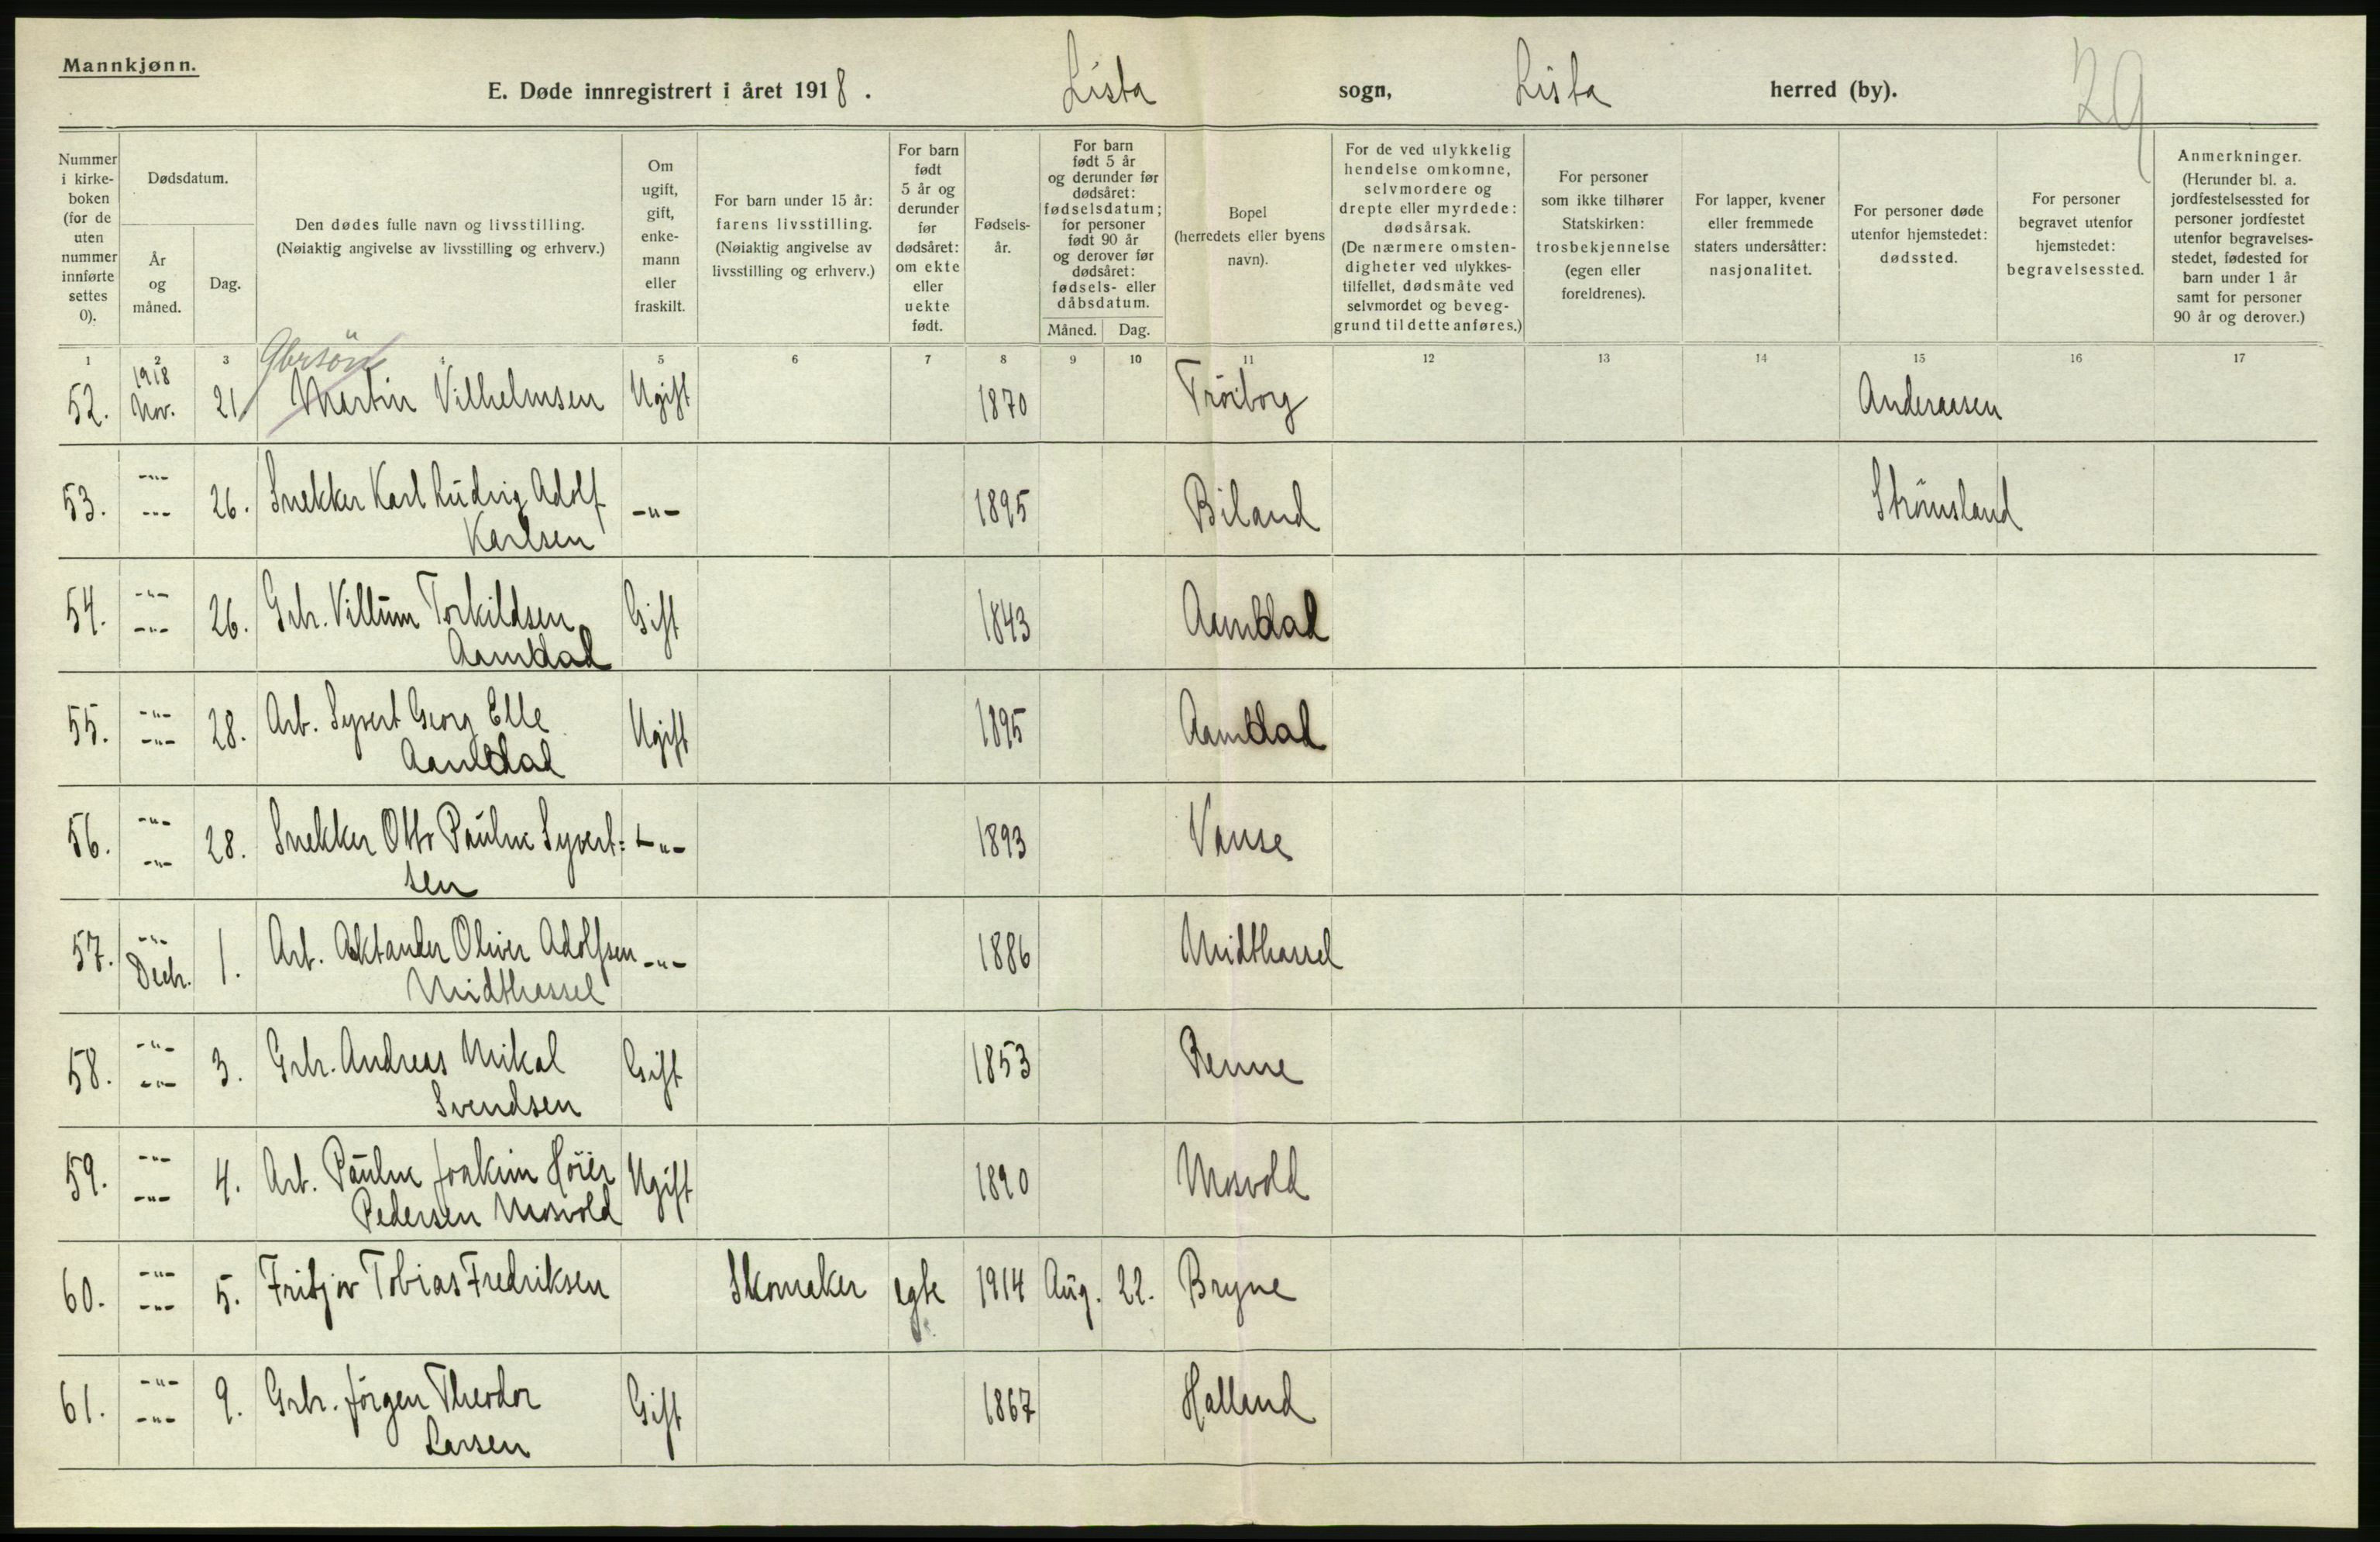 Mannkjønn.
E. Døde innregistrert i året 1918. Lista sogn, Lista herred (by). 29
Nummer i kirke-boken (for de uten nummer innførte settes 0).
Dødsdatum.
År og måned.
Dag.
Den dødes fulle navn og livsstilling.
(Nøiaktig angivelse av livsstilling og erhverv.)
Om ugift, gift, enke-mann eller fraskilt.
For barn under 15 år: farens livsstilling. (Nøiaktig angivelse av livsstilling og erhverv.)
For barn født 5 år og derunder før dødsåret: om ekte eller uekte født.
Fødsels-år.
For barn født 5 år og derunder før dødsåret: fødselsdatum; for personer født 90 år og derover før dødsåret: fødsels- eller dåbsdatum.
Måned. Dag.
Bopel (herredets eller byens navn).
For de ved ulykkelig hendelse omkomne, selvmordere og drepte eller myrdede: dødsårsak. (De nærmere omsten-digheter ved ulykkes-tilfellet, dødsmåte ved selvmordet og beveg-grund til dette anføres.)
For personer som ikke tilhører Statskirken: trosbekjennelse (egen eller foreldrenes).
For lapper, kvener eller fremmede staters undersåtter: nasjonalitet.
For personer døde utenfor hjemstedet: dødssted.
For personer begravet utenfor hjemstedet: begravelsessted.
Anmerkninger. (Herunder bl. a. jordfestelsessted for personer jordfestet utenfor begravelses-stedet, fødested for barn under 1 år samt for personer 90 år og derover.)
1 2 3 4 5 6 7 8 9 10 11 12 13 14 15 16 17
Gbrsön
52. 1918 Nov. 21. Martin Vilhelmsen Ugift 1870 Tröiborg Anderaasen
53. -"- -"- 26. Snekker Karl Ludvig Adolf -"- 1895 Biland Strömsland
Karlsen
54. -"- -"- 26. Grbr. Villum Torkildsen Gift 1843 Aamdal
Aamdal
55. -"- -"- 28. Arb. Syvert Georg Elle Ugift 1895 Aamdal
Aamdal
56. -"- -"- 28. Snekker Otto Pauline Syvert= -"- 1893 Vanse
sen
57. -"- Decbr. 1. Arb. Aktander Oliver Adolfsen -"- 1886 Midthassel
Midthassel
58. -"- -"- 3. Grbr. Andreas Mikal Gift 1853 Penne
Svendsen
59. -"- -"- 4. Arb. Joakim Höier Ugift 1890 Mosvold
Pedersen Mosvold
60. -"- -"- 5. Fritjov Tobias Fredriksen Skomaker egte 1914 Aug. 22. Bryne
61. -"- -"- 9. Grbr. Jörgen Theodor Gift 1867 Halland
Larsen